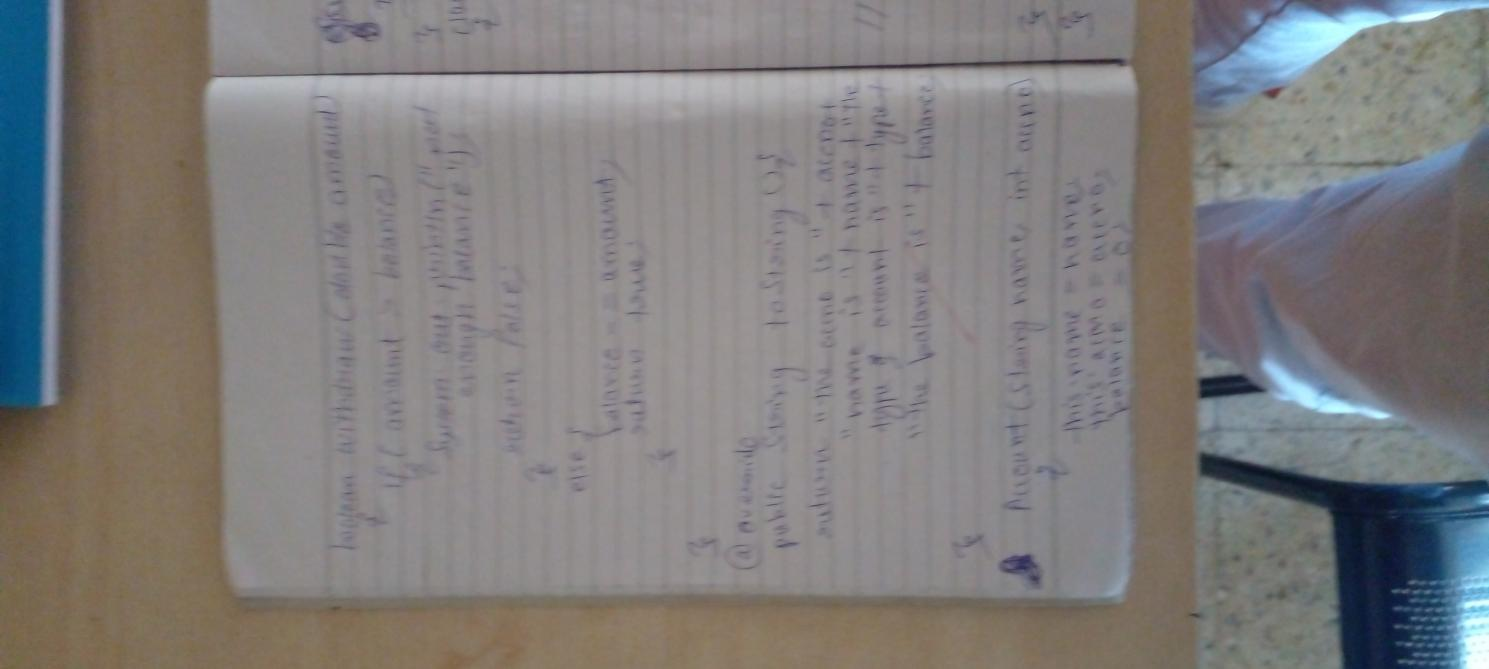 boolean withdraw(double amount)
{
if (amount > balance)
{
System.out.println("not
enough balance");
return false;
}
else {
balance -= amount;
return true;
}
}
@override
public String toString(){
return "the acno is" + acno +
"name is" + name + "the
type of account is" + type +
"the balance is" + balance;
}
Account(String name int acno)
{
this.name = name;
this.acno = acno;
balance = 0;